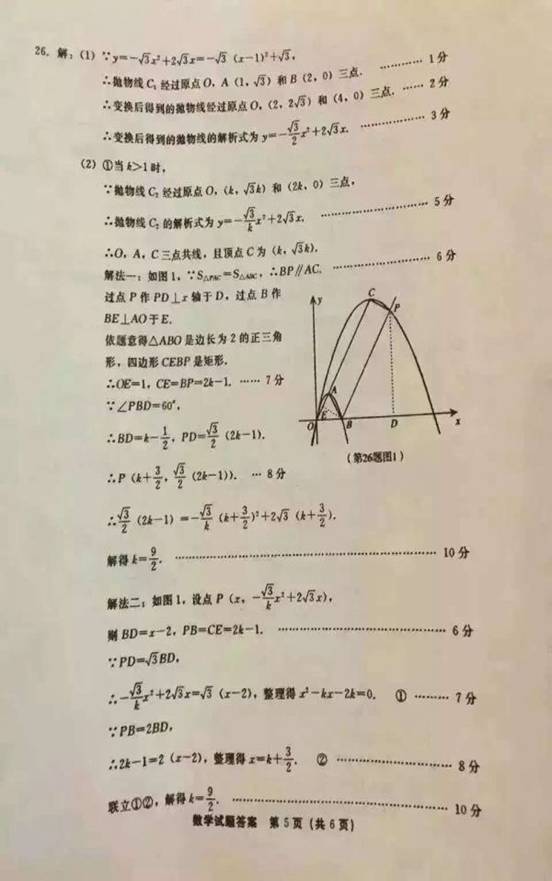 26. 解：(1) ∵y=-√3x²+2√3x=-√3 (x-1)²+√3,
∴抛物线 C₁ 经过原点 O，A (1, √3) 和 B (2, 0) 三点. ………… 1分
∴变换后得到的抛物线经过原点 O，(2, 2√3) 和 (4, 0) 三点. …… 2分
∴变换后得到的抛物线的解析式为 y=-√3/2x²+2√3x. ………… 3分
(2) ①当 k>1 时，
∵抛物线 C₂ 经过原点 O，(k, √3k) 和 (2k, 0) 三点，
∴抛物线 C₂ 的解析式为 y=-√3/kx²+2√3x. ………… 5分
∴O，A，C 三点共线，且顶点 C 为 (k, √3k).
解法一：如图 1，∵S△PAC=S△ABC，∴BP∥AC. ………… 6分
过点 P 作 PD⊥x 轴于 D，过点 B 作
BE⊥AO 于 E.
依题意得△ABO 是边长为 2 的正三角
形，四边形 CEBP 是矩形.
∴OE=1，CE=BP=2k-1. …… 7分
∵∠PBD=60°,
∴BD=k-1/2，PD=√3/2 (2k-1).
∴P (k+3/2, √3/2 (2k-1)). … 8分
y
C
P
A
E
O
B
D
x
(第26题图1)
∴√3/2 (2k-1) =-√3/k (k+3/2)²+2√3 (k+3/2).
解得 k=9/2. ………… 10分
解法二：如图 1，设点 P (x, -√3/kx²+2√3x),
则 BD=x-2，PB=CE=2k-1. ………… 6分
∵PD=√3BD,
∴-√3/kx²+2√3x=√3 (x-2)，整理得 x²-kx-2k=0. ① ……… 7分
∵PB=2BD,
∴2k-1=2 (x-2)，整理得 x=k+3/2. ② ………… 8分
联立①②，解得 k=9/2. ………… 10分
数学试题答案 第 5 页 (共 6 页)